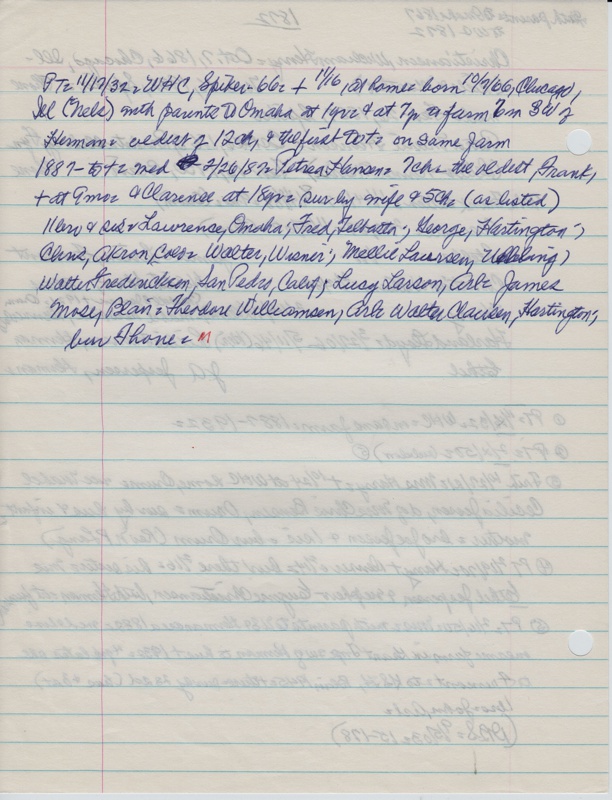 PT= 11/17/32= WHC, Spiker= 66= + 11/16, at home= born 10/7/66, Chicago,
Ill (Nels) with parents to Omaha at 1yr= & at 7 to farm 7m SW of
Herman= oldest of 12ch, & the first to + = on same farm
1887- to += med 2/26/87= Petrea Hansen= 7ch= the oldest, Frank,
+ at 9mo= & Clarence at 18yr= sur by wife & 5Ch= (as listed)
11bro & sis= Lawrence, Omaha; Fred, George, Hartington;
Chris, Akron, Colo= Walter, Wisner; Mellie Laursen,
Walter Fredericksen, San Pedro, Calif; Lucy Larson, Arl= James
Mose, Blair= Theodore Williamsen, Arl= Walter Clausen, Hartington;
bur = M